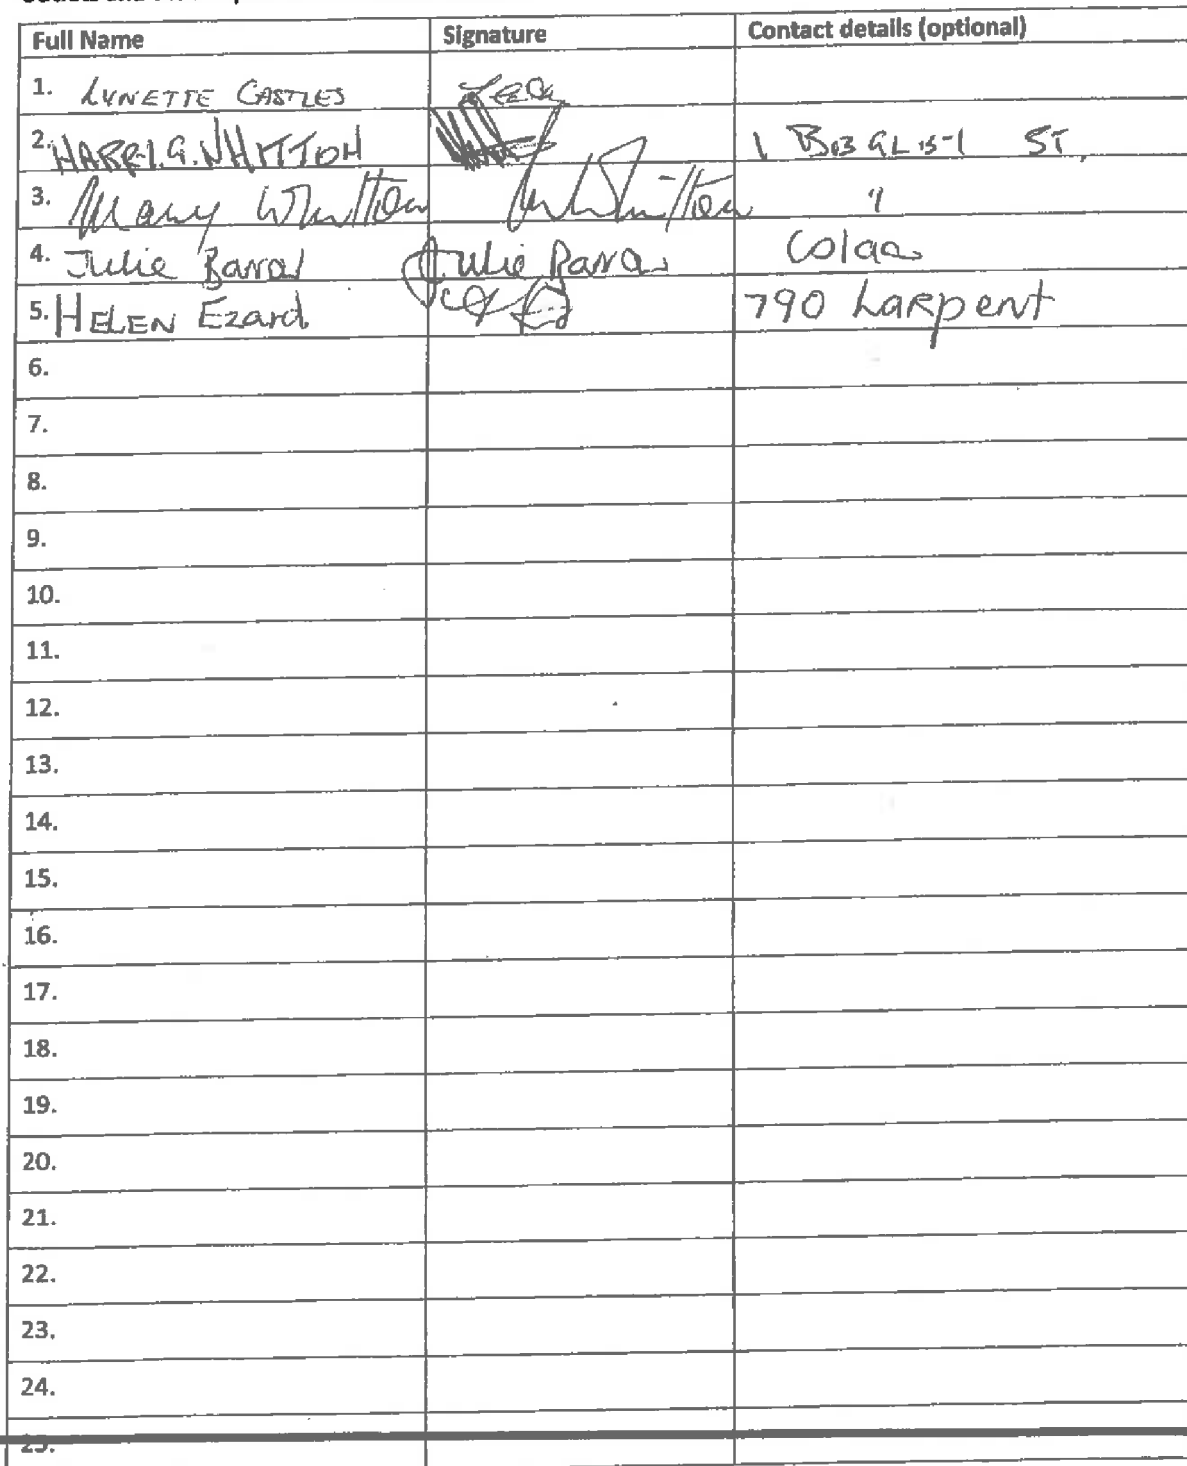 Full Name Signature Contact details (optional)
1. LYNETTE CASTLES
2. HARRI.G.WHITTON 1 ST,
3. Mary Whitton Whitton "
4. Julie Julie Colac
5. HELEN Ezard 790 Larpent
6.
7.
8.
9.
10.
11.
12.
13.
14.
15.
16.
17.
18.
19.
20.
21.
22.
23.
24.
25.